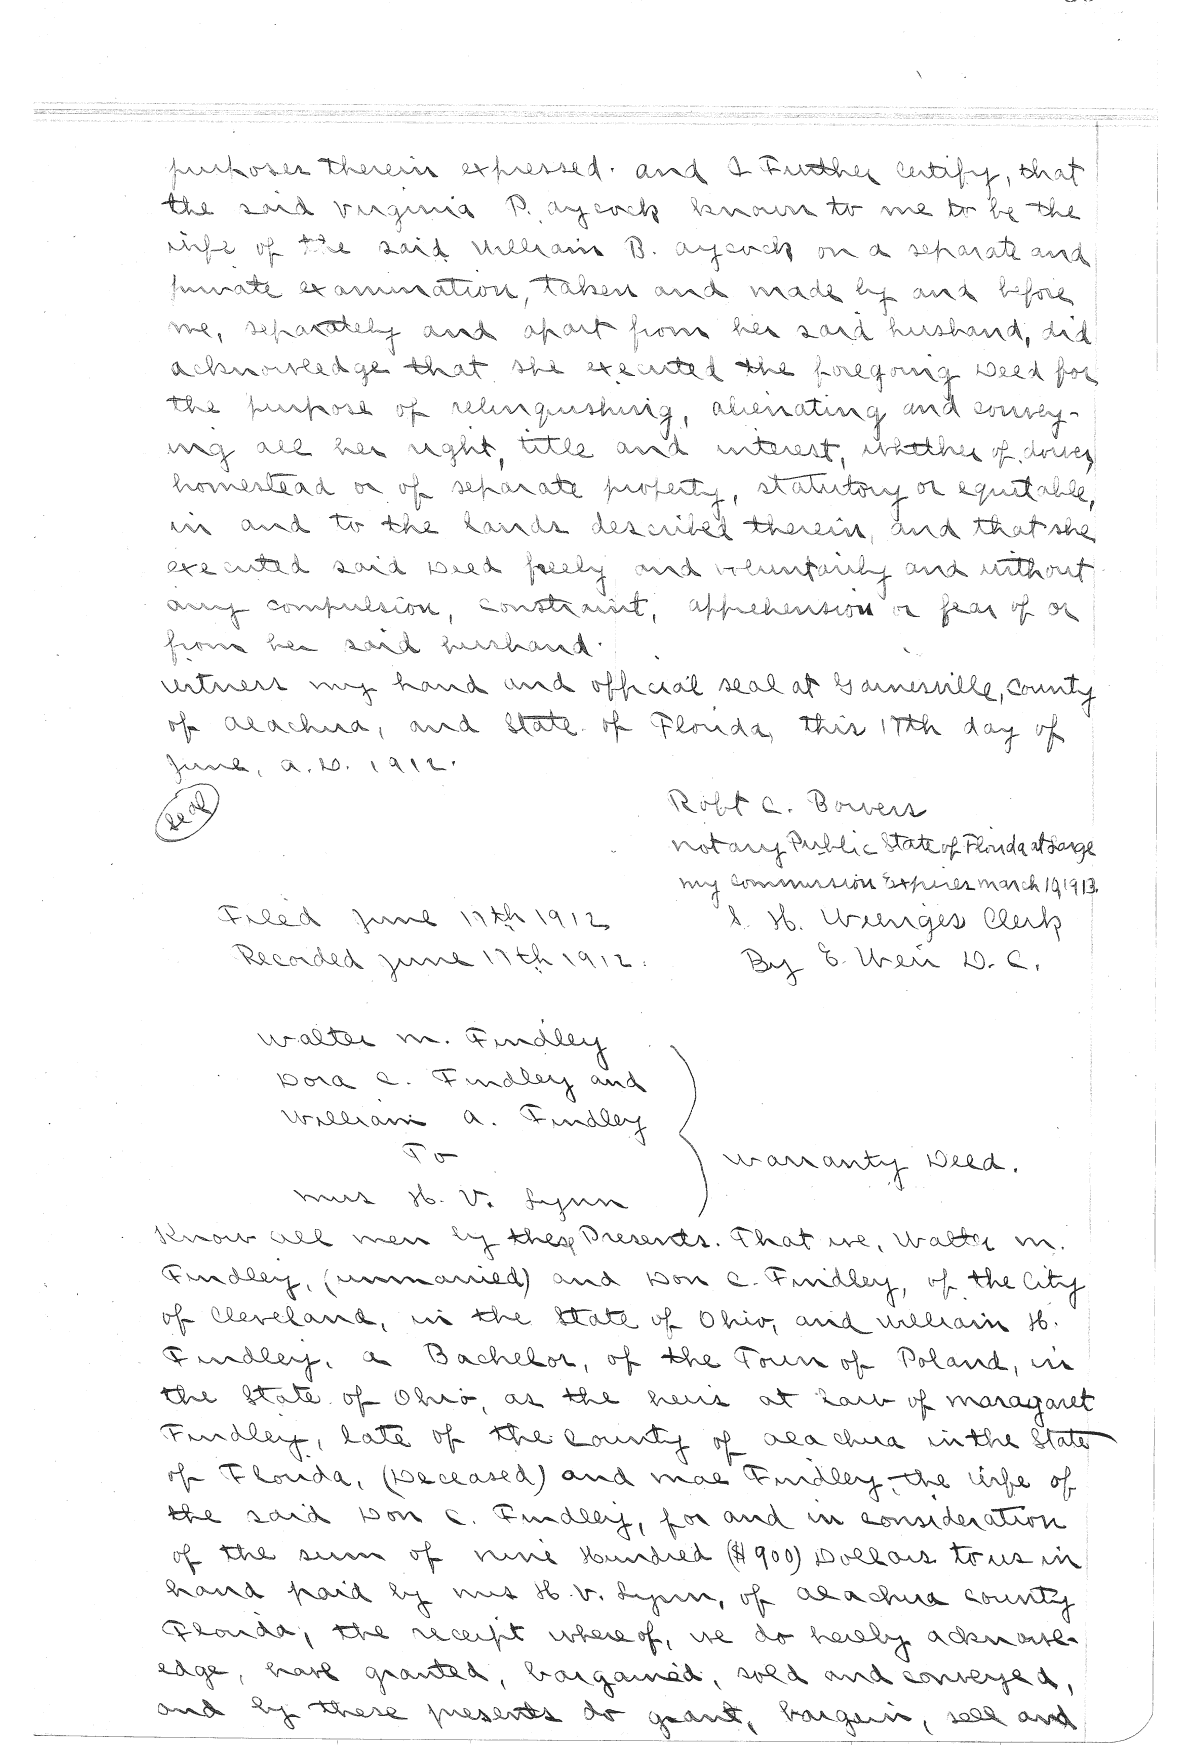 purposes therein expressed. and I Further certify, that
the said Virginia P. Aycock known to me to be the
wife of the said William B. Aycock on a separate and
private examination, taken and made by and before
me, separately and apart from her said husband, did
acknowledge that she executed the foregoing Deed for
the purpose of relinquishing, alienating and convey-
ing all her right, title and interest, whether of dower,
homestead or of separate property, statutory or equitable,
in and to the lands described therein, and that she
executed said Deed freely and voluntarily and without
any compulsion, constraint, apprehension or fear of or
from her said husband.
Witness my hand and official seal at Gainesville, County
of Alachua, and State of Florida, this 17th day of
June, A.D. 1912.
Seal
Robt C. Bowers
Notary Public State of Florida at Large
My commission Expires March 19, 1913.
Filed June 17th 1912 S. H. Wienges Clerk
Recorded June 17th 1912. By E. Weir D.C.
Walter M. Findley
Dora C. Findley and
William A. Findley
To
Warranty Deed.
Mrs H. V. Lynn
Know all men by these Presents. That we, Walter M.
Findley, (unmarried) and Don C. Findley, of the City
of Cleveland, in the State of Ohio, and William H.
Findley, a Bachelor, of the Town of Poland, in
the State of Ohio, as the heirs at Law of Maragaret
Findley, late of the County of Alachua in the State
of Florida, (Deceased) and Mae Findley, the wife of
the said Don C. Findley, for and in consideration
of the sum of Nine Hundred ($900) Dollars to us in
hand paid by Mrs H. V. Lynn, of Alachua County
Florida, the receipt whereof, we do hereby acknowl-
edge, have granted, bargained, sold and conveyed,
and by these presents do grant, bargain, sell and